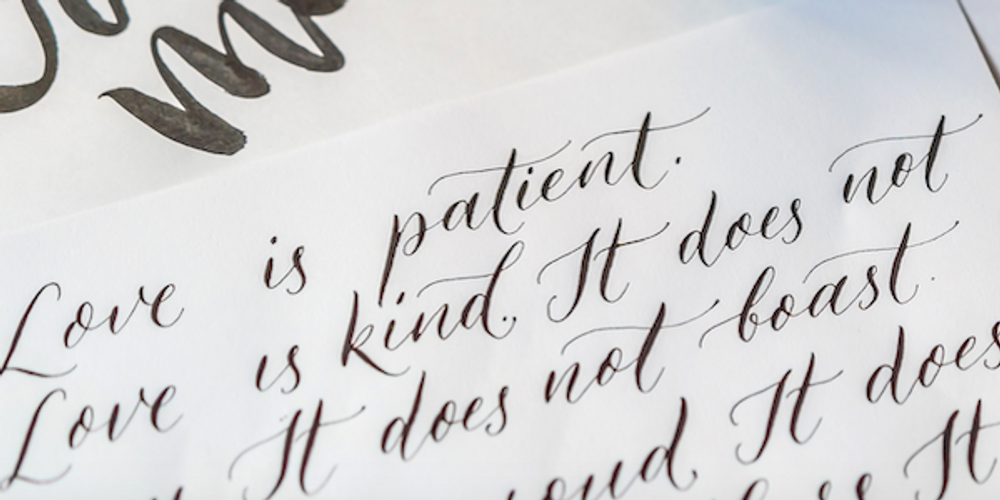 Love is patient.
Love is kind. It does not
It does not boast.
It does
It